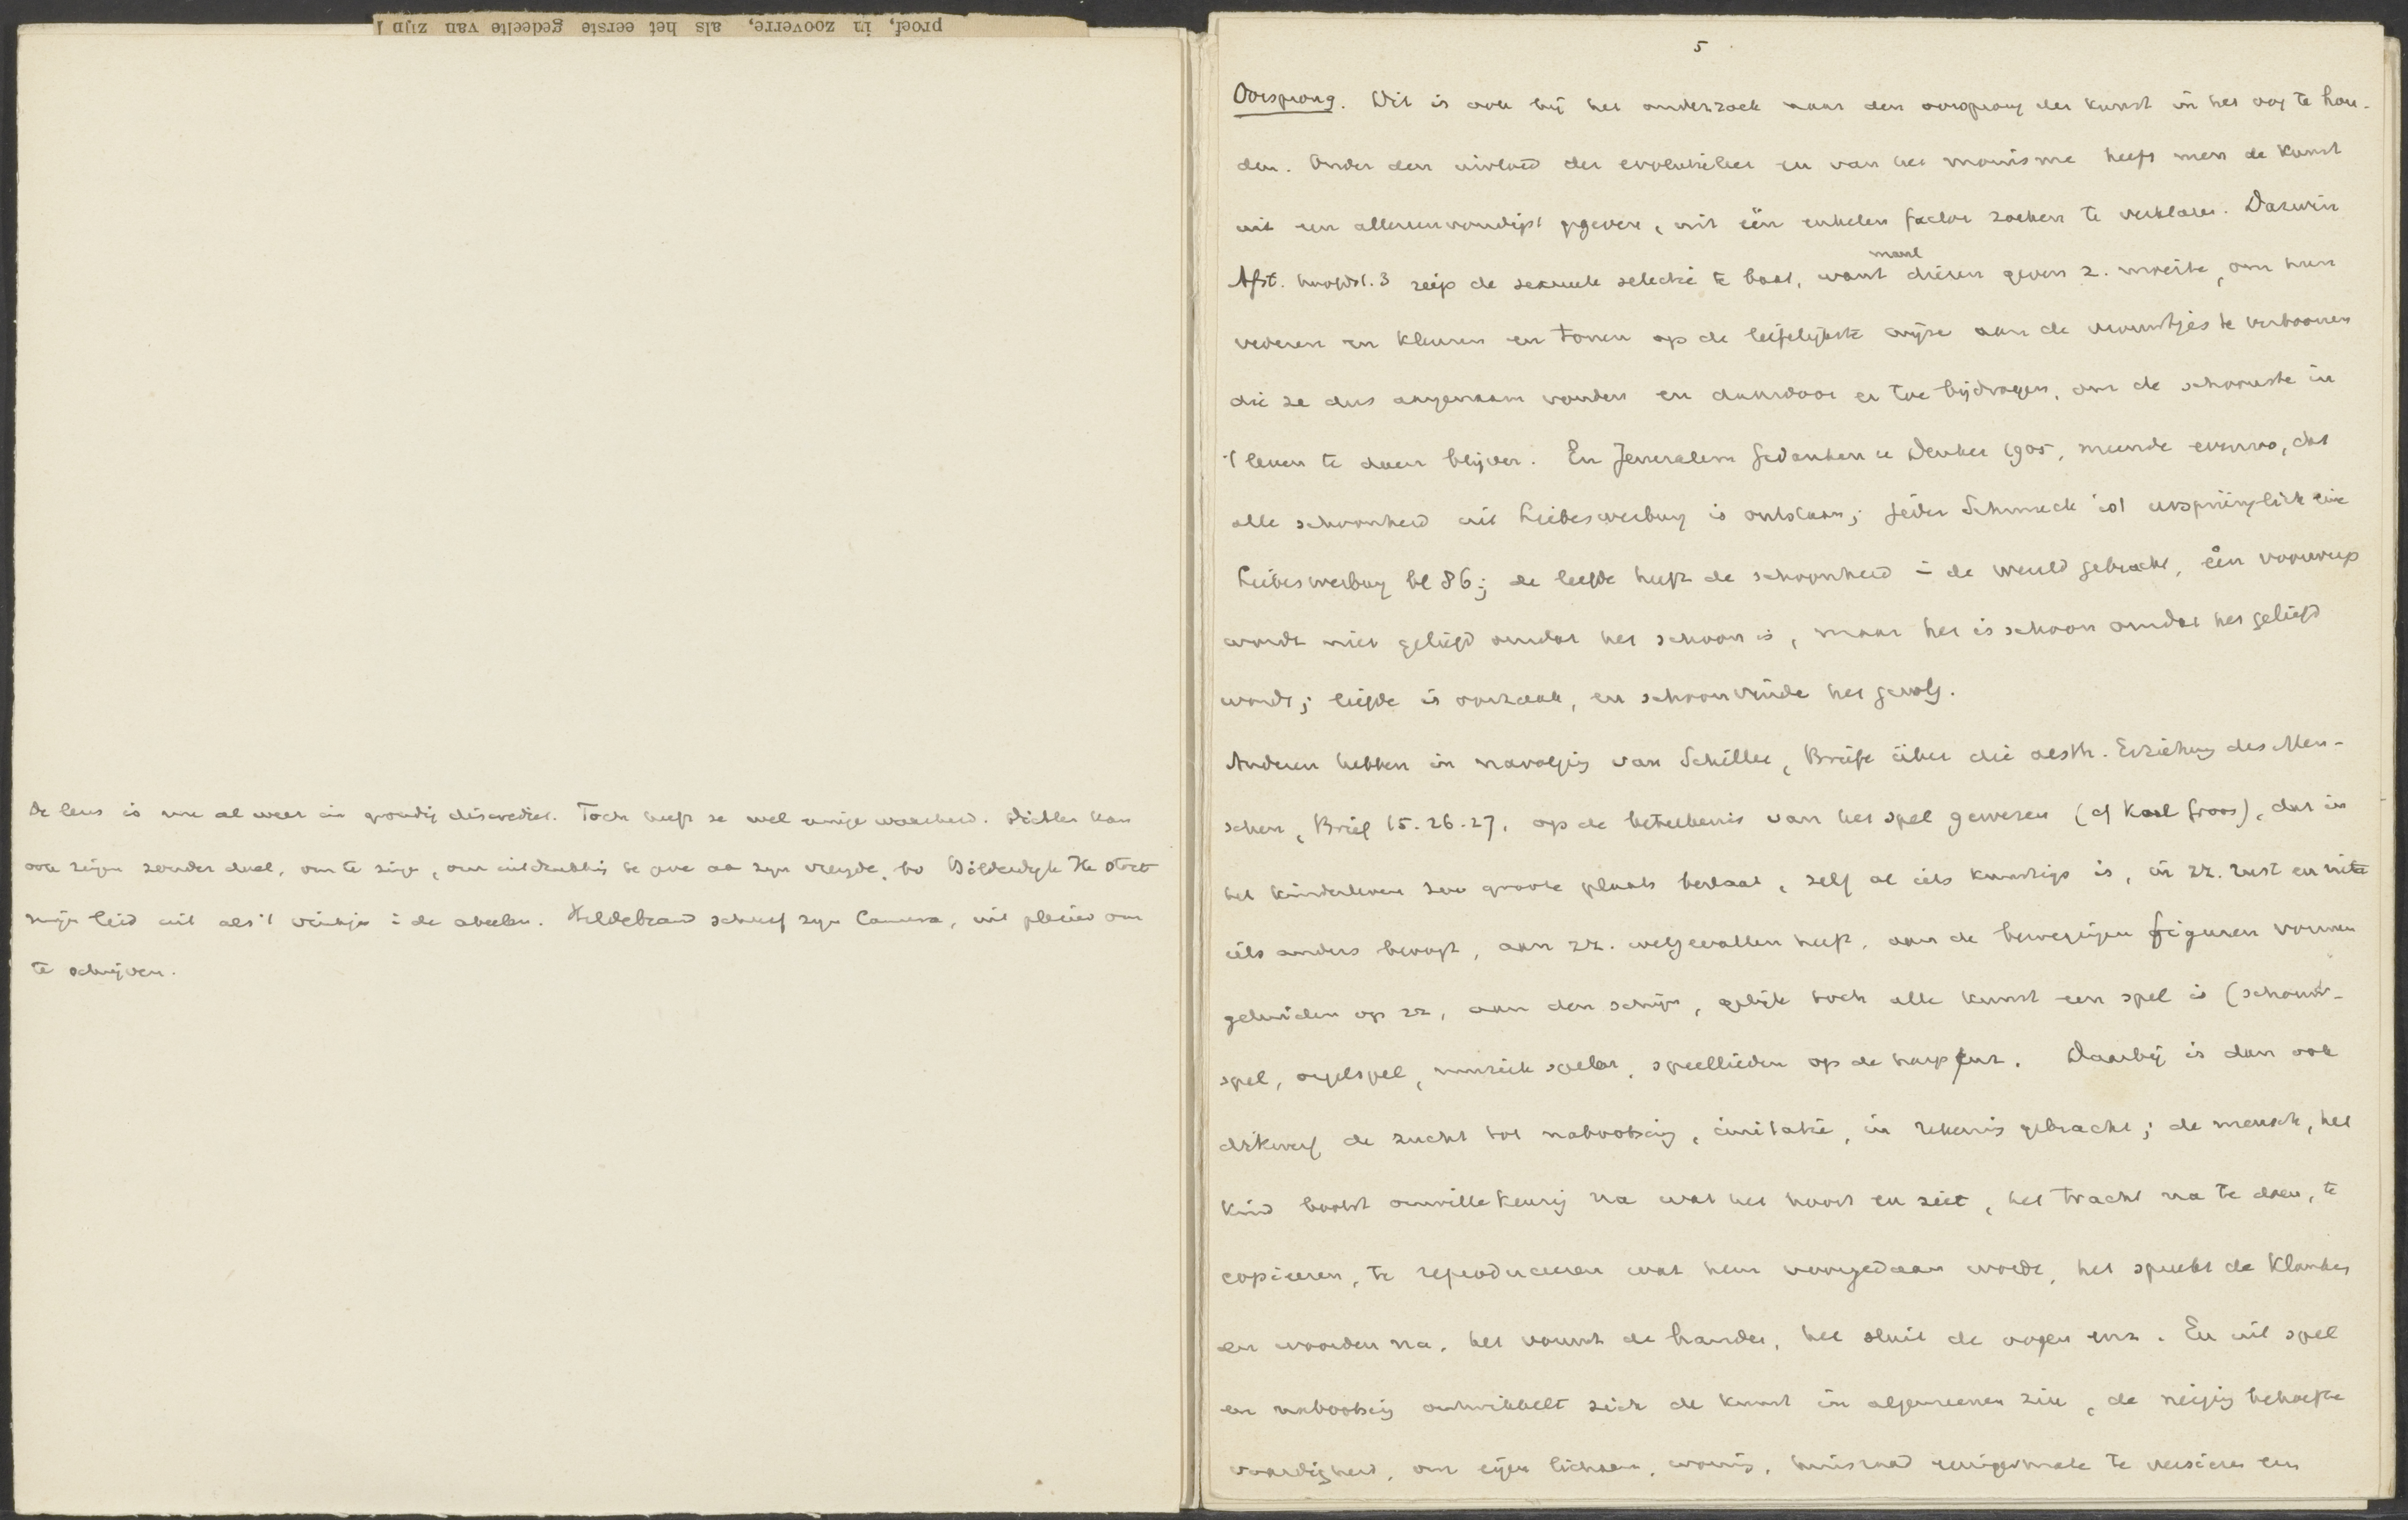 proef, in zooverre, als het eerste gedeelte van zijn
De leus is nu al weer in grondig discrediet. Toch heeft ze wel eenige waarheid. Dichter kan
ook zingen zonder doel, om te zingen, om uitdrukking te geve aa zijn vreugde, bv Bilderdijk Ik stort
mijn lied uit als 't vinkje i de abeelen. Hildebrand schreef zijn Camera, uit pleizier om
te schrijven.
5
Oorsprong. Dit is ook bij het onderzoek naar den oorsprong der kunst in het oog te hou-
den. Onder den invloed der evolutieleer en van het monisme heeft men de kunst
uit een allereenvoudigst gegeven, uit één enkelen factor zoeken te verklaren. Darwin
Afst. hoofdst. 3 riep de sexueele selectie te baat, want dieren geven z. moeite, om hun
manl
vederen en kleuren en tonen op de liefelijkste wijze aan de vrouwtjes te vertoonen
die ze dus aangenaam vonden en daardoor er toe bijdragen, om de schoonste in
't leven te doen blijven. En Jerusalem Gedanken u Denker 1905, meende evenzo, dat
alle schoonheid uit Liebeswerbung is ontstaan; jeder Schmuck ist ursprünglich eine
Liebeswerbung bl 86; de liefde heeft de schoonheid i de wereld gebracht, een voorwerp
wordt niet geliefd omdat het schoon is, maar het is schoon omdat het geliefd
wordt; liefde is oorzaak, en schoonvinde het gevolg.
Anderen hebben in navolging van Schiller, Briefe über die aesth. Erziehung des Men-
schen, Brief 15. 26. 27, op de beteekenis van het spel gewezen (cf Karl Groos), dat in
het kinderleven zoo groote plaats beslaat, zelf al iets kunstigs is, in zz. rust en niets
iets anders beoogt, aan zz. welgevallen heeft, aan de bewegingen figuren vormen
geluiden op zz, aan den schijn, gelijk toch alle kunst een spel is (schouw-
spel, orgelspel, muziek spelen, speellieden op de harp enz. Daarbij is dan ook
dikwerf de zucht tot nabootsing, imitatie, in rekening gebracht; de mensch, het
kind bootst onwillekeurig na wat het hoort en ziet, het tracht na te doen, te
copieeren, te reproduceeren wat hem voorgedaan wordt, het spreekt de klanken
en woorden na, het vouwt de handen, het sluit de oogen enz. En uit spel
en nabootsing ontwikkelt zich de kunst in algemeenen zin, de neiging behoefte
vaardigheid, om eigen lichaam, woning, huisraad eenigermate te versieren en